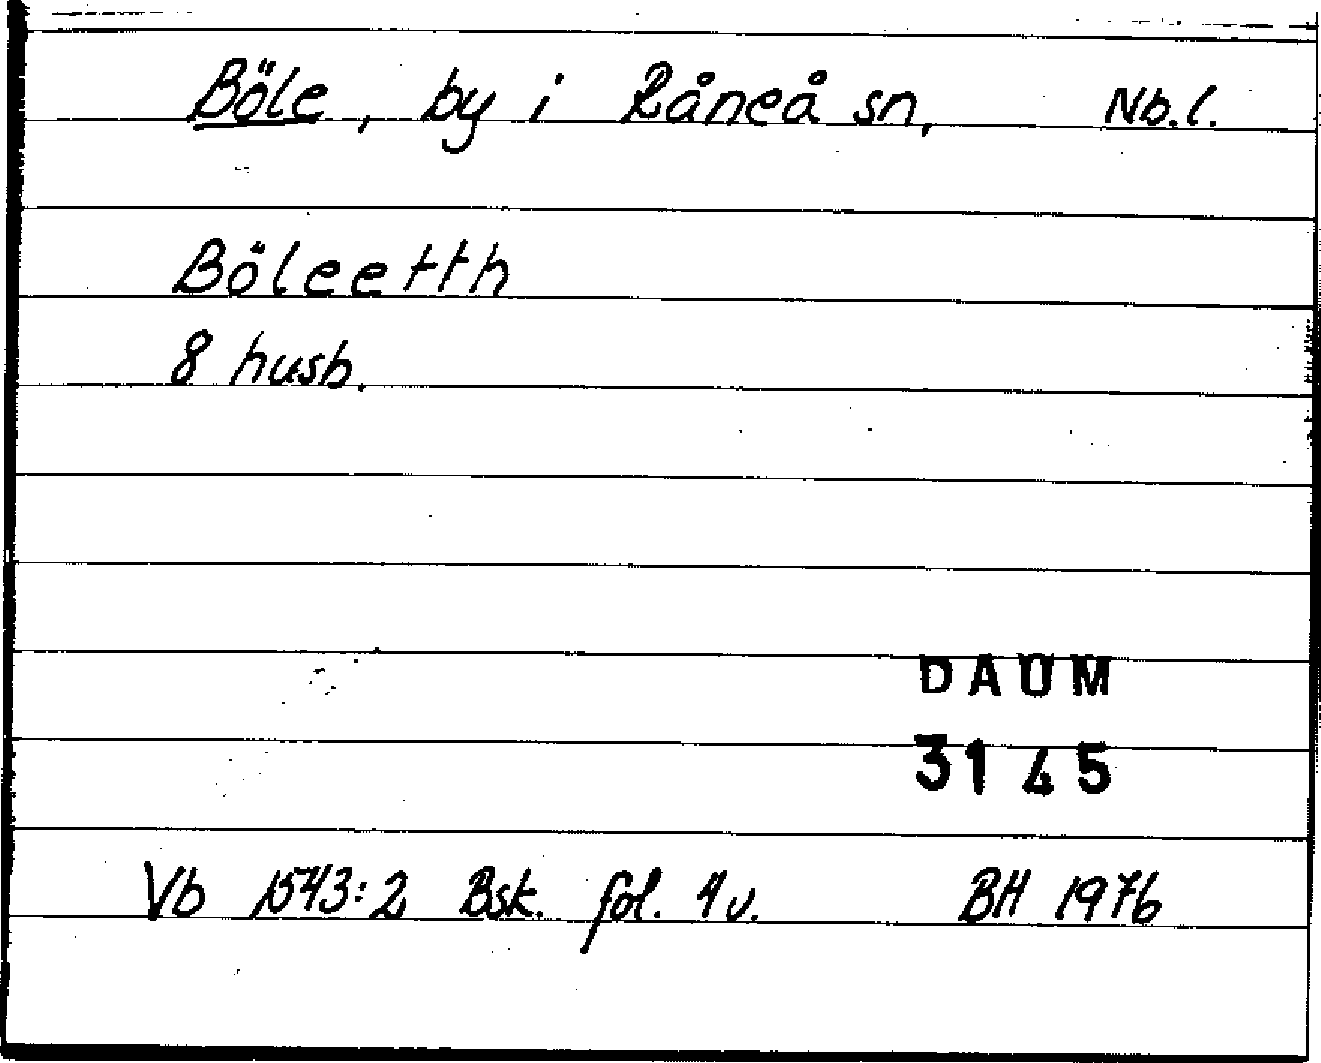 Böle, by i Råneå sn, Nb.l.
Böleetth
8 husb.
DAUM
3145
Vb 1543:2 Bsk. fol. 4v. BH 1976